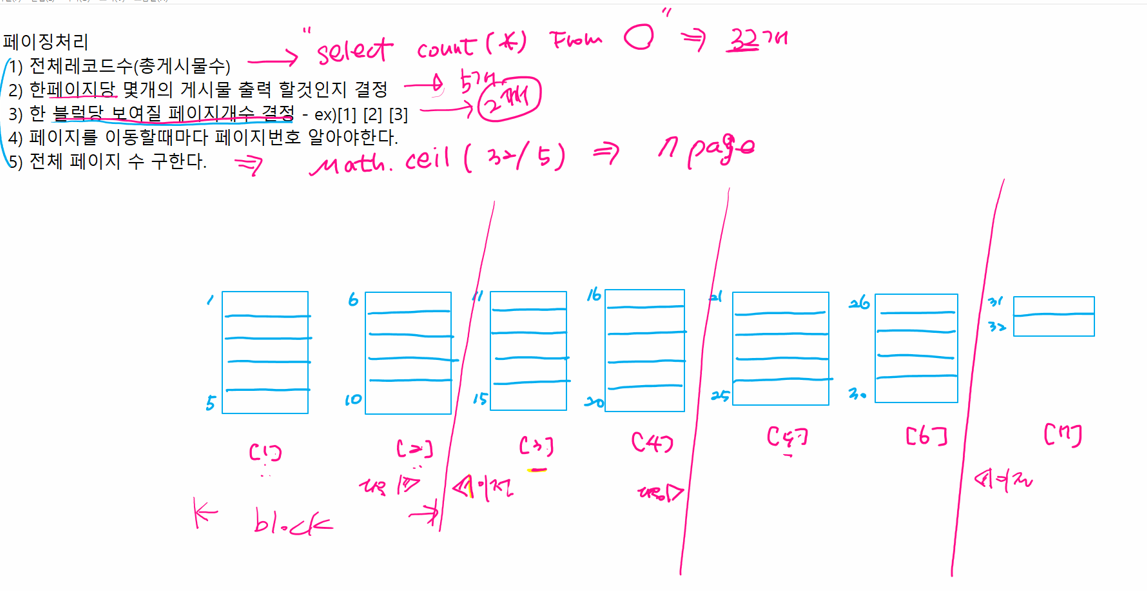 페이징처리
1) 전체레코드수(총게시물수) → "select count(*) From O" ⇒ 32개
2) 한페이지당 몇개의 게시물 출력 할것인지 결정 → 5개
3) 한 블럭당 보여질 페이지개수 결정 - ex)[1] [2] [3] → 2개
4) 페이지를 이동할때마다 페이지번호 알아야한다.
5) 전체 페이지 수 구한다. ⇒ Math.ceil(32/5) ⇒ 7 page
1 6 11 16 21 26 31
32
5 10 15 20 25 30
[1] [2] [3] [4] [5] [6] [7]
다음▷ ◁이전 다음▷ ◁이전
block